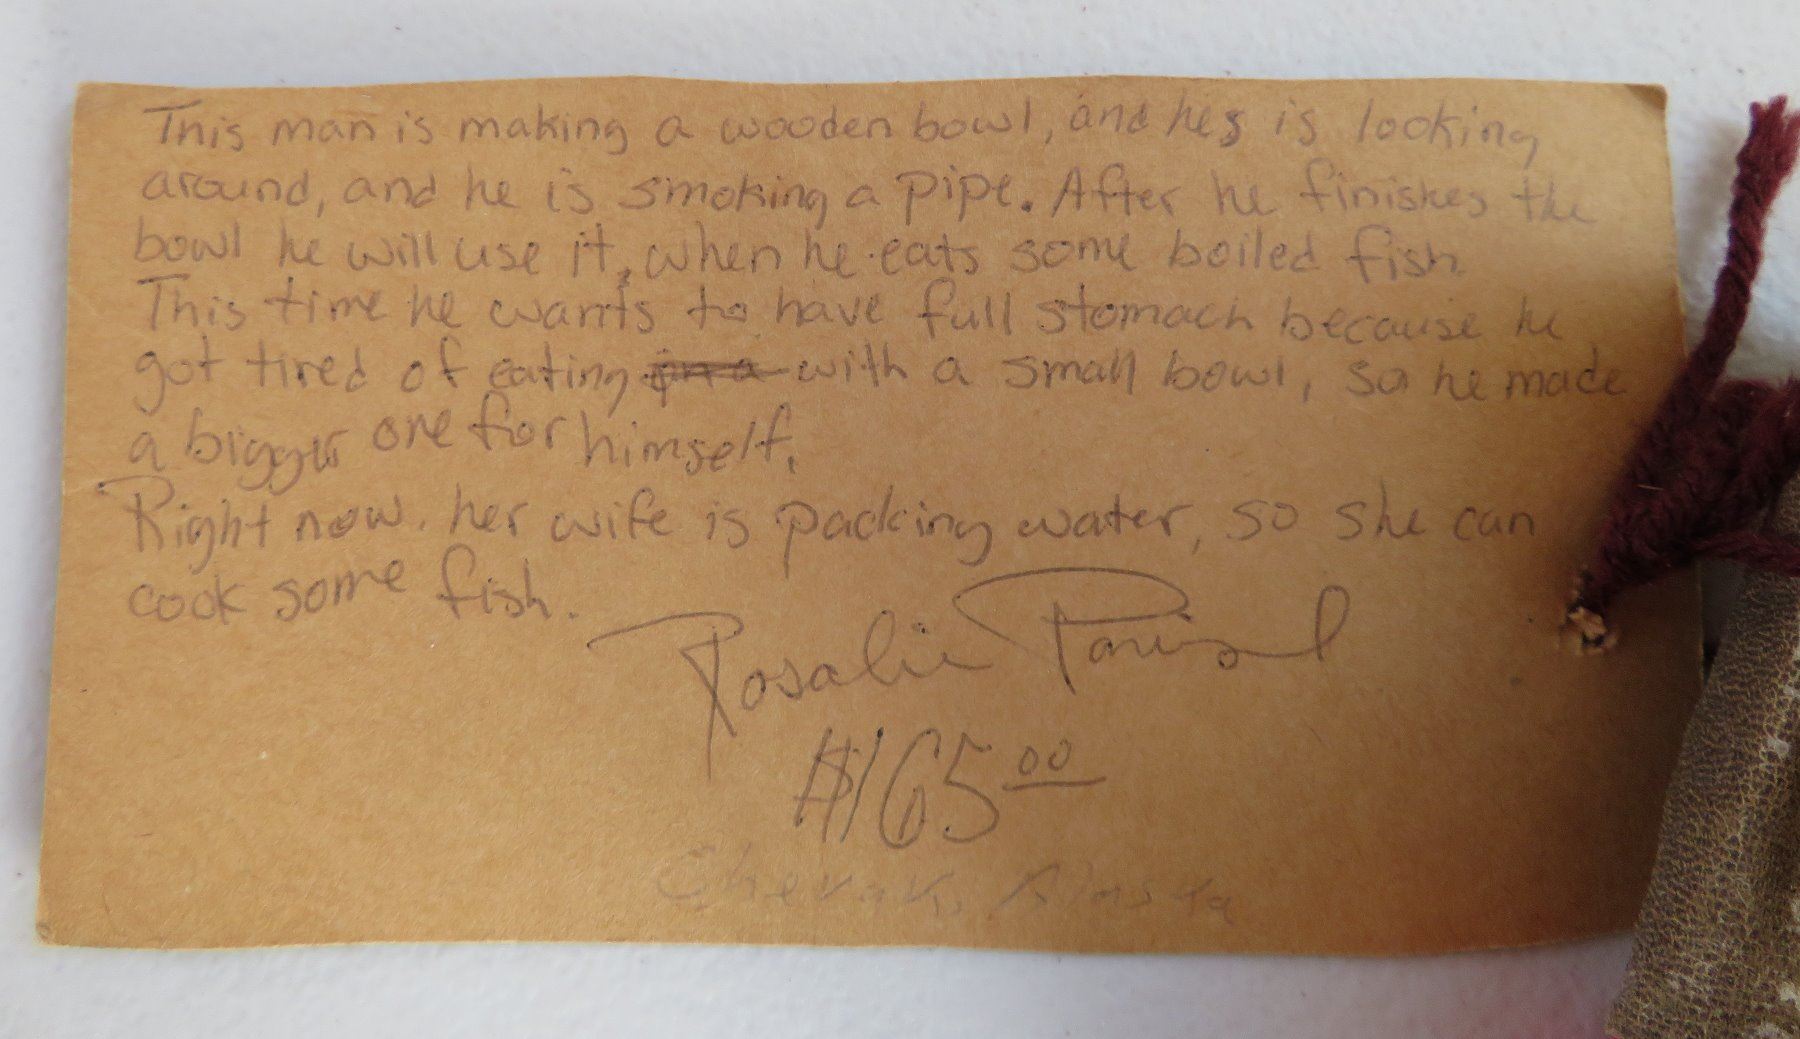 This man is making a wooden bowl, and hes is looking
around, and he is smoking a pipe. After he finishes the
bowl he will use it, when he eats some boiled fish.
This time he wants to have full stomach because he
got tired of eating with a small bowl, so he made
a bigger one for himself.
Right now. her wife is packing water, so she can
cook some fish.
Rosalie
$165.00
Chevak, Alaska